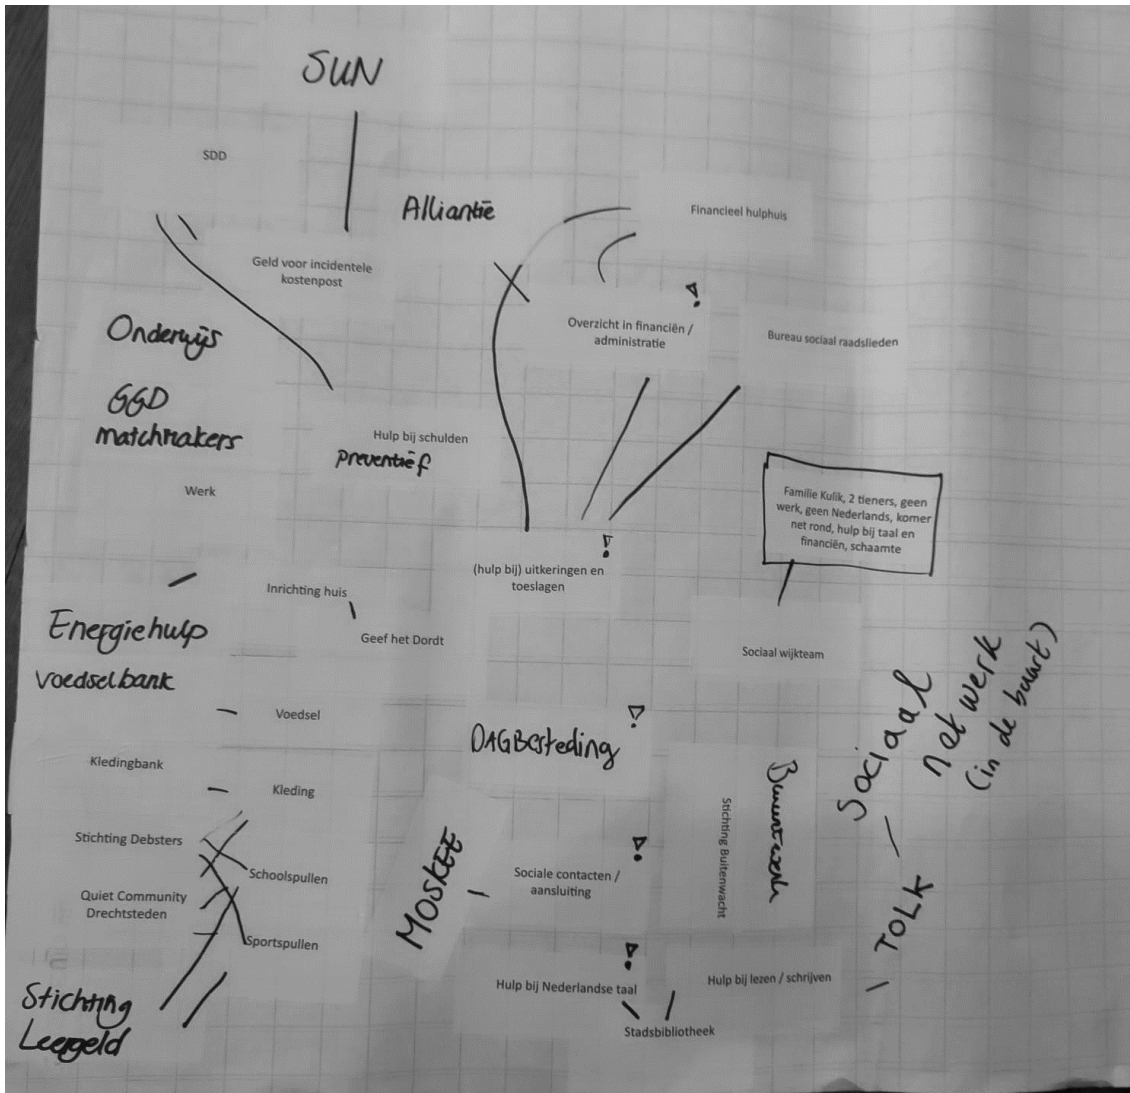 SUN
SDD
Alliantie
Financieel hulphuis
Geld voor incidentele
kostenpost
Overzicht in financiën /
administratie
Bureau sociaal raadslieden
Onderwijs
GGD
matchmakers
Hulp bij schulden
preventief
Werk
Familie Kulik, 2 tieners, geen
werk, geen Nederlands, komer
net rond, hulp bij taal en
financiën, schaamte
(hulp bij) uitkeringen en
toeslagen
Inrichting huis
Geef het Dordt
Energiehulp
voedselbank
Sociaal wijkteam
Sociaal
netwerk
(in de buurt)
Voedsel
DAGBesteding
Kledingbank
Kleding
Stichting Debsters
Schoolspullen
Quiet Community
Drechtsteden
Sportspullen
MOSKEE
Sociale contacten /
aansluiting
Stichting Buitenwacht
Buurtwerk
TOLK
Hulp bij Nederlandse taal
Hulp bij lezen / schrijven
Stadsbibliotheek
Stichting
Leergeld